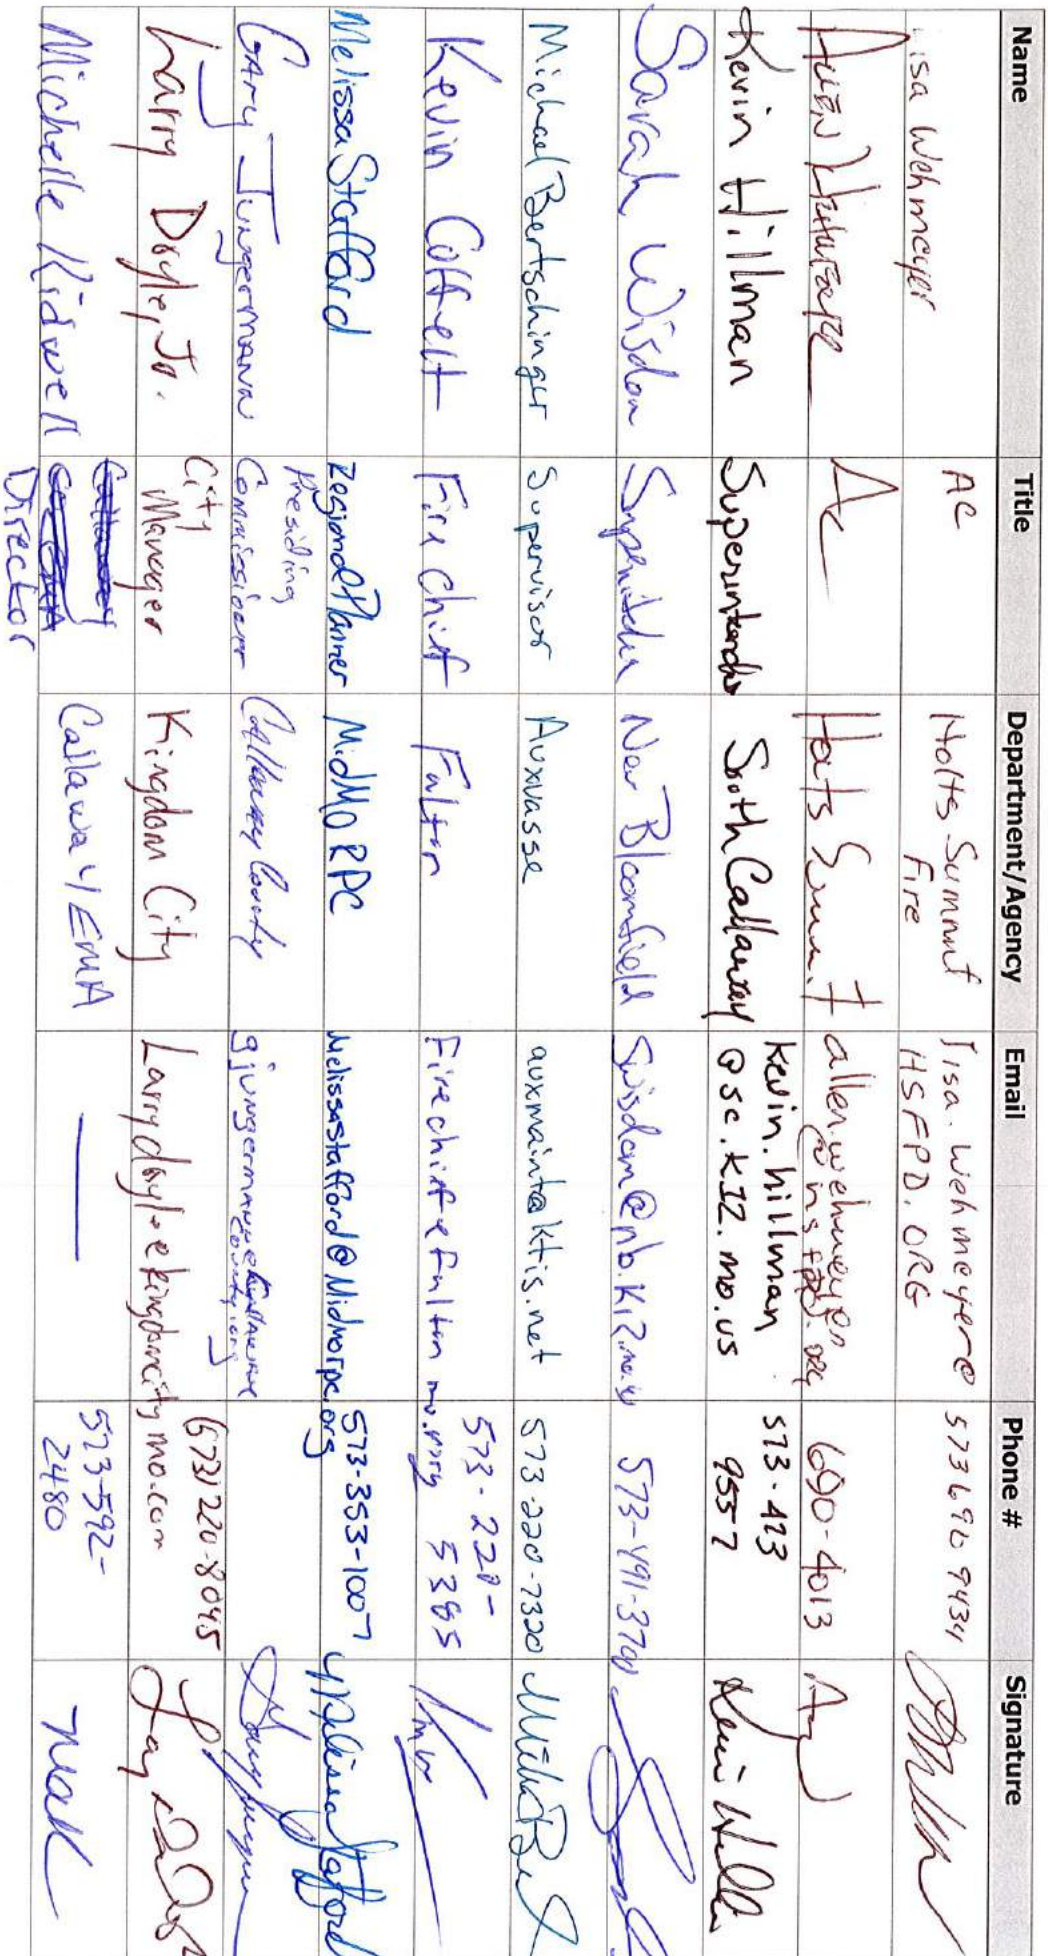 Name Title Department/Agency Email Phone # Signature
Lisa Wehmeyer AC Holts Summit Fire lisa.wehmeyer@ HSFPD.ORG 573 690 9434
Allen AC Holts Summit allen.wehmeyer @ hsfpd.org 690-4013
Kevin Hillman Superintendent South Callaway kevin.hillman @sc.k12.mo.us 573-423 9557 Kevin Hillman
Sarah Wisdom New Bloomfield Swisdom@nb.k12.mo.us 573-491-3700
Michael Bertschinger Supervisor Auxvasse auxmainta@ktis.net 573-220-7320
Kevin Coffelt Fire Chief Fulton Firechief@fultonmo.org 573-220- 5385
Melissa Stafford Regional Planner Mid MO RPC MelissaStafford@Midmorpc.org 573-353-1007 Melissa Stafford
Gary Jungermann Presiding Commissioner Callaway County
Larry Doyle, Jr. City Manager Kingdom City Larrydoyle@kingdomcitymo.com (573) 220-8045
Michelle Kidwell Director Callaway EMA — 573-592- 2480